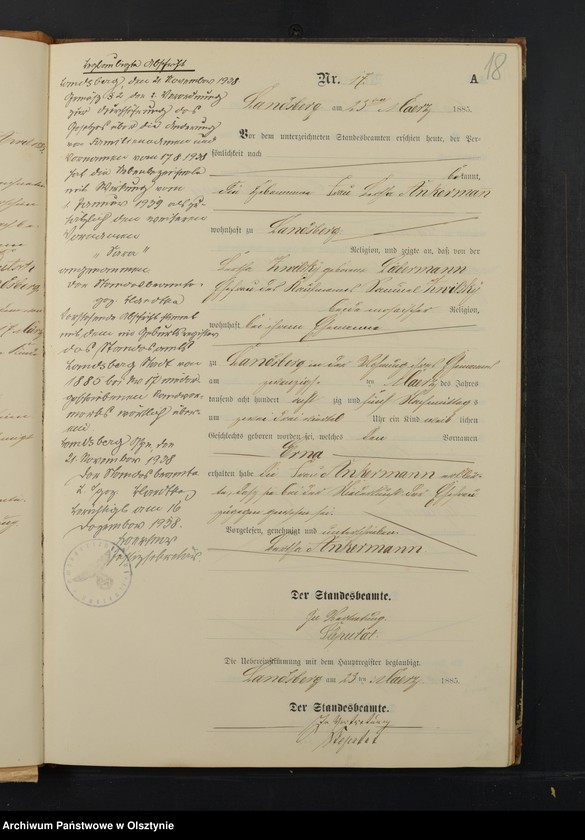 Beglaubigte Abschrift
Landsberg, den 21. November 1938
Gemäß § 2 der 2. Verordnung
zur Durchführung des
Gesetzes über die Änderung
von Familiennamen und
Vornamen vom 17.8.1938
hat die Nebenbezeichnete
mit Wirkung vom
1. Januar 1939 als zu-
sätzlich den weiteren
Vornamen
„Sara“
angenommen
Der Standesbeamte
gez.
Vorstehende Abschrift stimmt
mit dem im Geburtsregister
des Standesamts
Landsberg Stadt von
1885 bei Nr. 17 nieder
geschriebenen Randver-
merks wörtlich über-
ein
Landsberg Ostpr., den
21. November 1938
Der Standesbeamte
gez.
Berichtigt am 16
Dezember 1938.
18
Nr. 17. A
Landsberg am 23ten Maerz 1885.
Vor dem unterzeichneten Standesbeamten erschien heute, der Per-
sönlichkeit nach
bekannt,
die Hebamme Frau Bertha Ankerman
wohnhaft zu Landsberg
Religion, und zeigte an, daß von der
geborene
Ehefrau des Kaufmanns Samuel
beide mosaischer Religion,
wohnhaft bei ihrem Ehemanne
zu Landsberg in der Wohnung ihres Ehemann
am zwanzigsten Maerz des Jahres
tausend acht hundert acht zig und fünf Nachmittag
um Uhr ein Kind weib lichen
Geschlechts geboren worden sei, welches den Vornamen
Erna
erhalten habe die Frau Ankermann
daß sie bei der Niederkunft der Ehefrau
zugegen gewesen sei.
Vorgelesen, genehmigt und unterschrieben
Bertha Ankermann
Der Standesbeamte.
In Vertretung
Die Uebereinstimmung mit dem Hauptregister beglaubigt.
Landsberg am 23ten Maerz 1885.
Der Standesbeamte.
In Vertretung
Archiwum Państwowe w Olsztynie